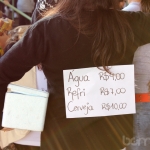 Água R$4,00
Refri R$7,00
Cerveja R$10,00